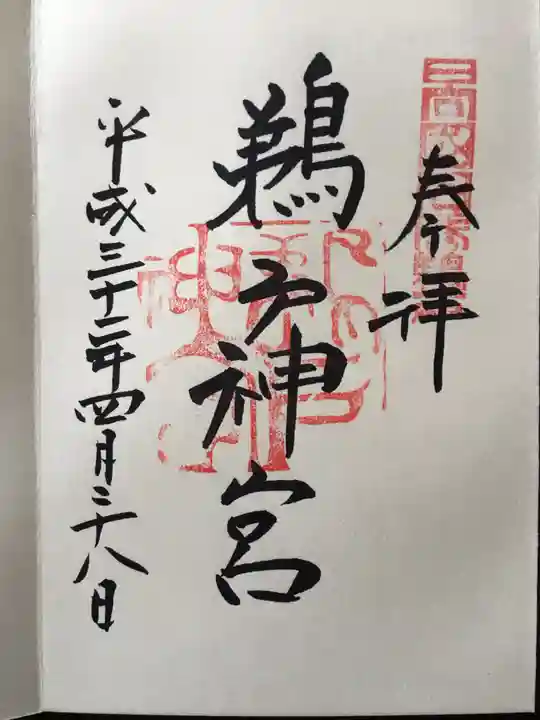 奉拝
鵜戸神宮
平成三十一年四月二十八日